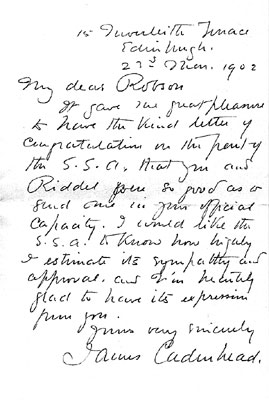 15 Inverleith Terrace
Edinburgh.
22nd Mar. 1902
My dear Robson
It gave me great pleasure
to have the kind letter of
congratulation on the part of
the S.S.A. that you and
Riddel were so good as to
send me in your official
capacity. I would like the
S.S.A. to know how highly
I estimate its sympathy and
approval, and I'm heartily
glad to have its expression
from you.
Yours very sincerely
James Cadenhead.